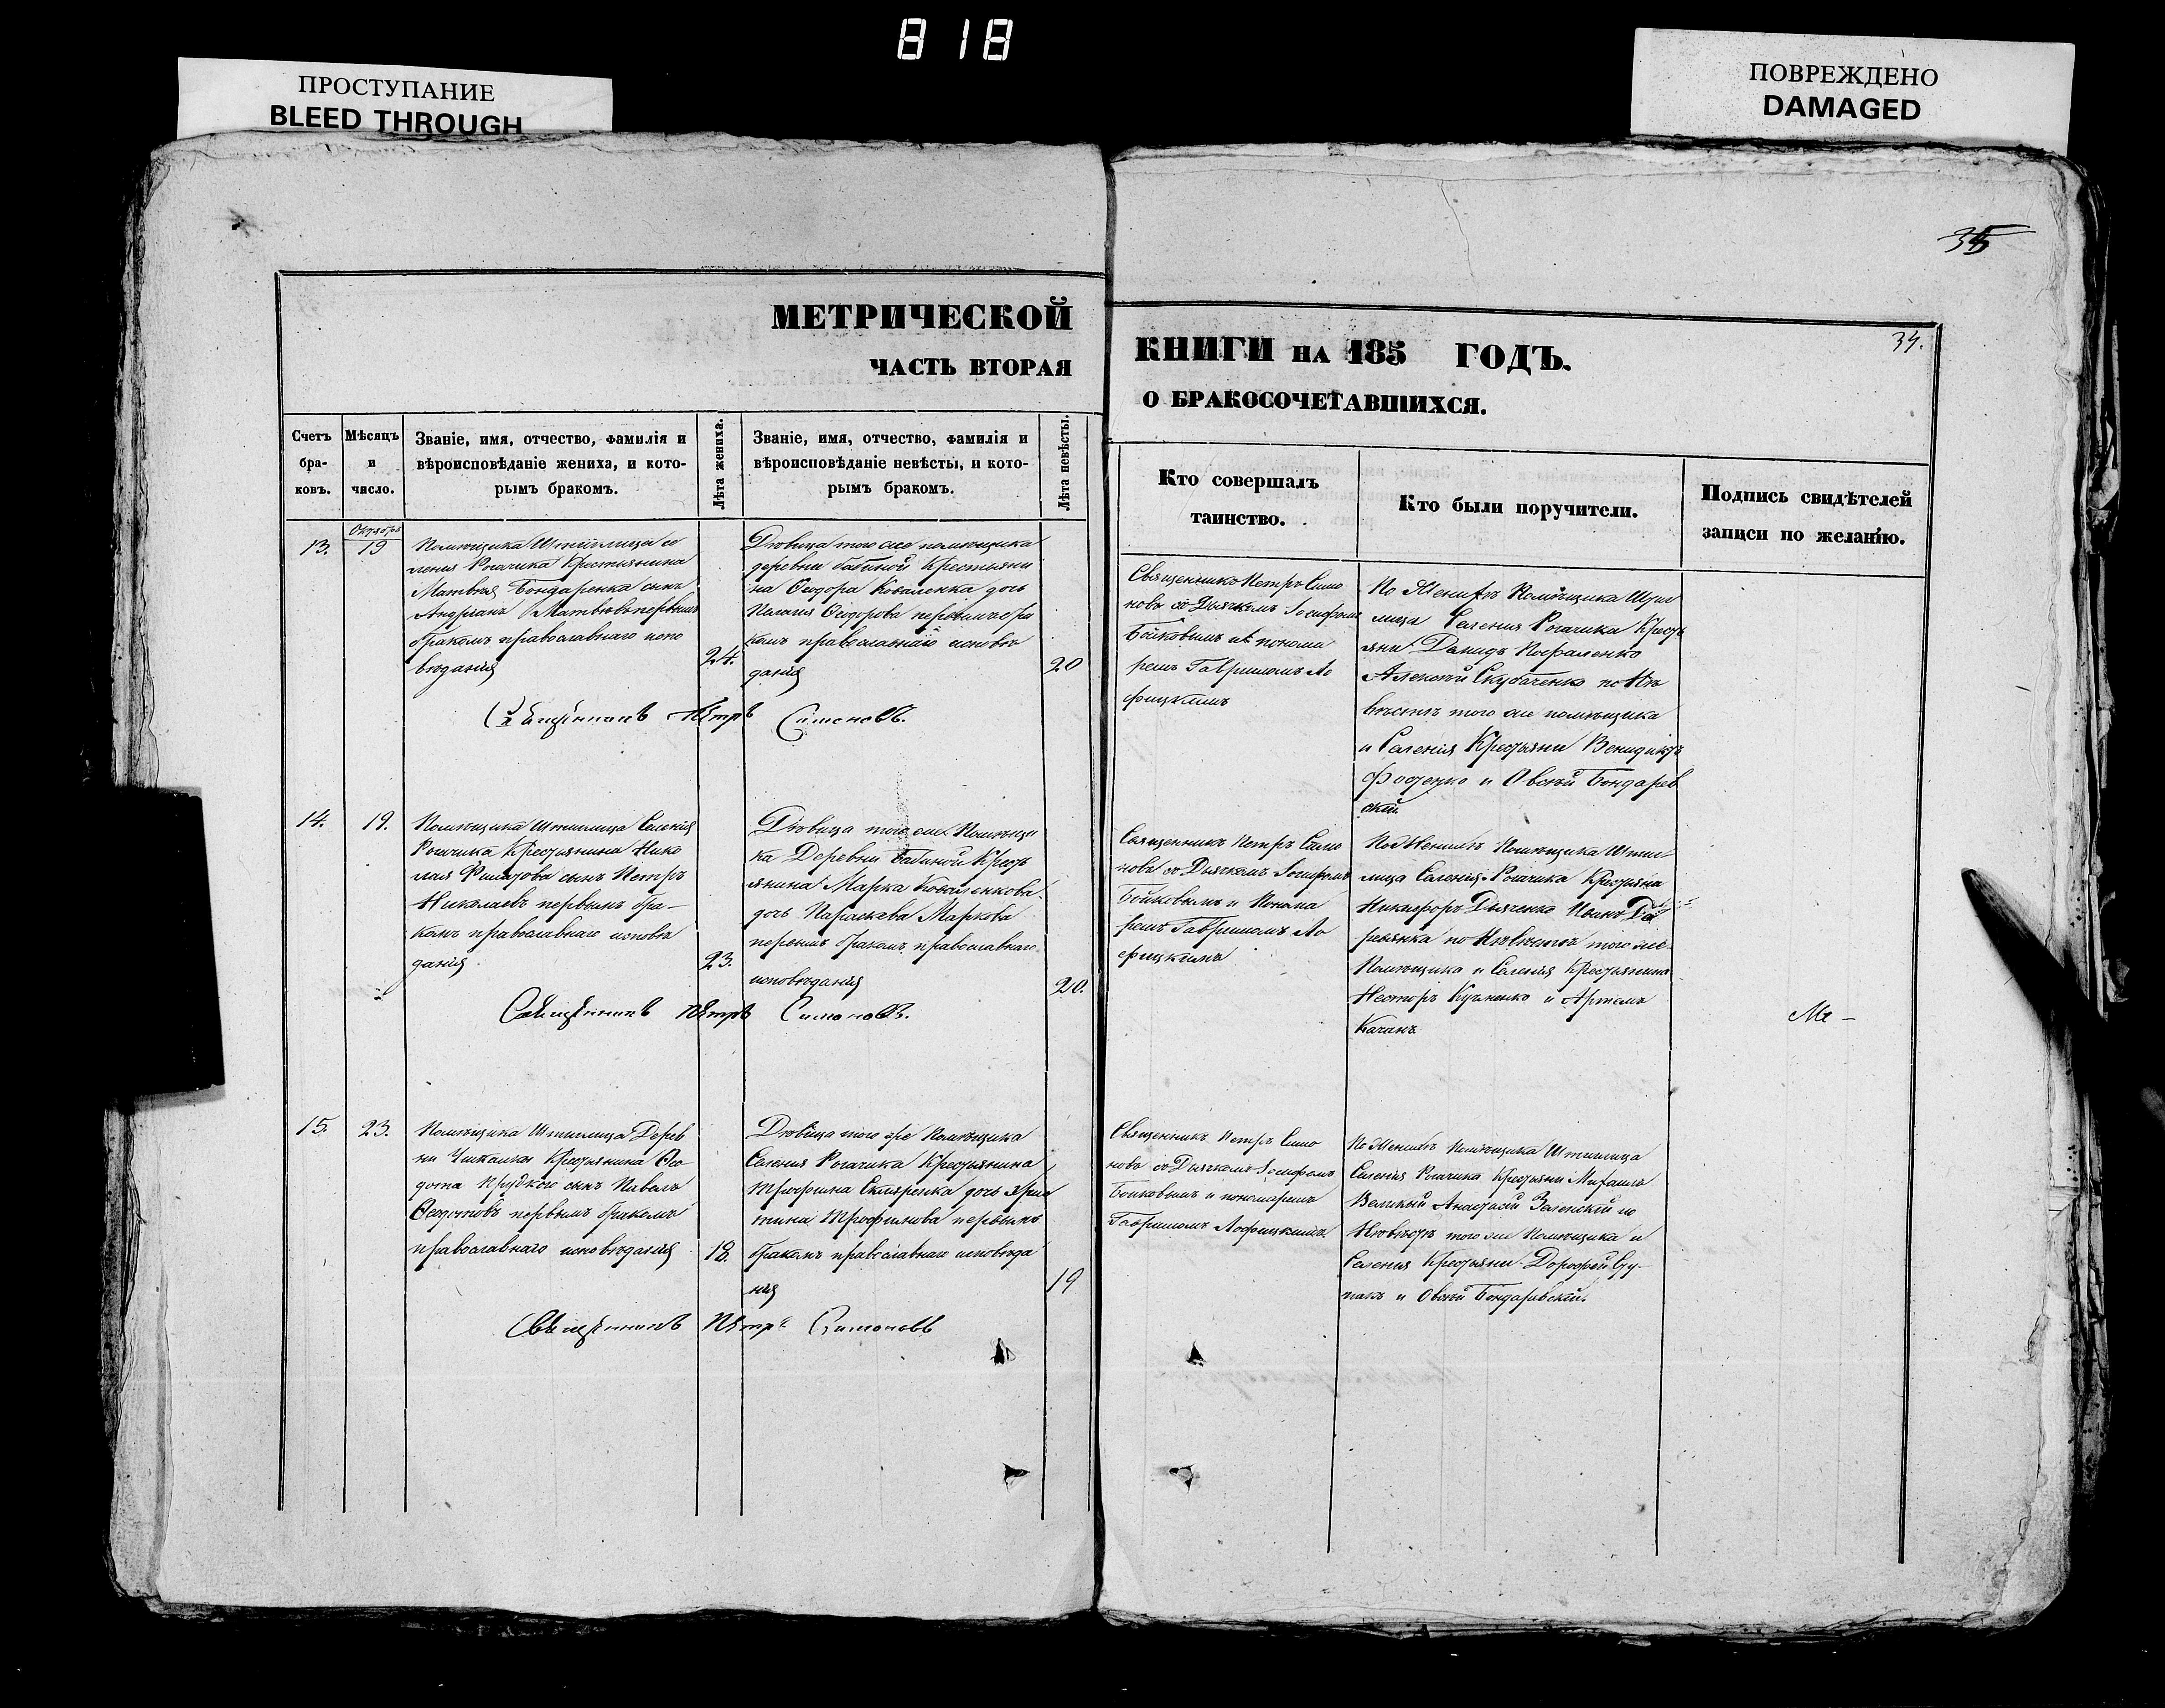 818
ПРОСТУПАНИЕ
BLEED THROUGH
ПОВРЕЖДЕНО
DAMAGED
35
34.
МЕТРИЧЕСКОЙ
ЧАСТЬ ВТОРАЯ
КНИГИ НА 185 ГОДЪ.
О БРАКОСОЧЕТАВШИХСЯ.
Счетъ
бра-
ковъ.
Мѣсяцъ
и
число.
Званіе, имя, отчество, фамилія и
вѣроисповѣданіе жениха, и кото-
рымъ бракомъ.
Лѣта жениха.
Званіе, имя, отчество, фамилія и
вѣроисповѣданіе невѣсты, и кото-
рымъ бракомъ.
Лѣта невѣсты.
Кто совершалъ
таинство.
Кто были поручители.
Подпись свидѣтелей
записи по желанію.
13.
Октября
19
Помѣщика Штиглица се
ленія Рогачика Крестьянина
Матвея Бондаренка сынъ
Андріанъ Матвѣевъ первымъ
бракомъ православнаго испо
вѣданія
24.
Дѣвица того же помѣщика
деревни Бабиной Крестьяни
на Ѳеодора Коваленка дочь
Палагія Ѳеодорова первымъ бра
комъ православнаго исповѣ
данія
20
Священникъ Петръ Симо
новъ со Дьячкомъ Іосифомъ
Бойковымъ и понома
ремъ Гавріиломъ
По Женихѣ Помѣщика Штиг
лица Селенія Рогачика Кресть
яни Давидъ
Алексѣй по Не
вѣстѣ того же помѣщика
и Селенія Крестьяни Венидиктъ
и Овсѣй Бондарев
скій.
Священникъ Петръ Симоновъ.
14.
19.
Помѣщика Штиглица Селенія
Рогачика Крестьянина Нико
лая Филатова сынъ Петръ
Николаевъ первымъ бра-
комъ православнаго исповѣ
данія
23.
Дѣвица того же Помѣщи
ка Деревни Бабиной Кресть
янина Марка Коваленкова
дочь Параскева Маркова
первымъ бракомъ православнаго
исповѣданія
20.
Священникъ Петръ Симо
новъ со Дьячкомъ Іосифомъ
Бойковымъ и Понома
ремъ Гавріиломъ
По Женихѣ Помѣщика Штиг-
лица Селенія Рогачика Крестьяне
Никифоръ Дьяченко Иванъ
по Невѣстѣ того же
Помѣщика и Селенія Крестьянина
Несторъ и Артемъ
Качанъ
Священникъ Петръ Симоновъ.
15.
23.
Помѣщика Штиглица Дерев
ни Крестьянина Ѳео
дота Прудкого сынъ Павелъ
Ѳеодотовъ первымъ бракомъ
православнаго исповѣданія
18.
Дѣвица того же Помѣщика
Селенія Рогачика Крестьянина
Трофима дочь Хрис
тина Трофимова первымъ
бракомъ православнаго исповѣда
нія
19
Священникъ Петръ Симо
новъ со Дьячкомъ Іосифомъ
Бойковымъ и пономаремъ
Гавріиломъ
По Женихѣ Помѣщика Штиглица
Селенія Рогачика Крестьяни Михаилъ
Великій Анастасій Зеленскій по
Невѣстѣ того же Помѣщика и
Селенія Крестьяни Дорофей Сту-
пакъ и Овсѣй Бондаревскій.
Священникъ Петръ Симоновъ